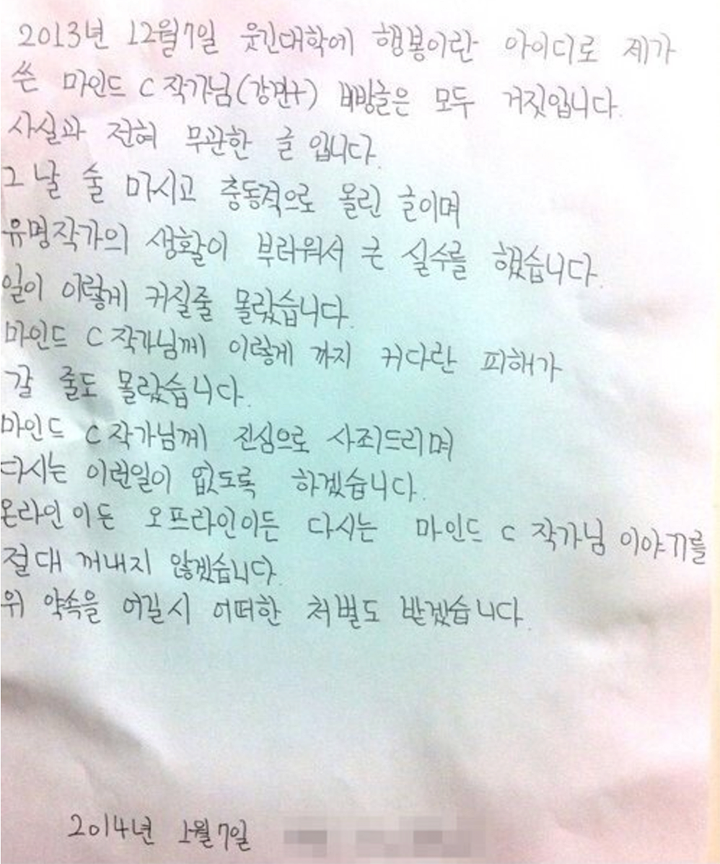 2013년 12월7일 웃긴대학에 행봉이란 아이디로 제가
쓴 마인드 C 작가님(강민구) 비방글은 모두 거짓입니다.
사실과 전혀 무관한 글 입니다.
그날 술 마시고 충동적으로 올린 글이며
유명작가의 생활이 부러워서 큰 실수를 했습니다.
일이 이렇게 커질줄 몰랐습니다.
마인드 C 작가님께 이렇게 까지 커다란 피해가
갈 줄도 몰랐습니다.
마인드 C 작가님께 진심으로 사죄드리며
다시는 이런일이 없도록 하겠습니다.
온라인이든 오프라인이든 다시는 마인드 C 작가님 이야기를
절대 꺼내지 않겠습니다.
위 약속을 어길시 어떠한 처벌도 받겠습니다.
2014년 1월7일